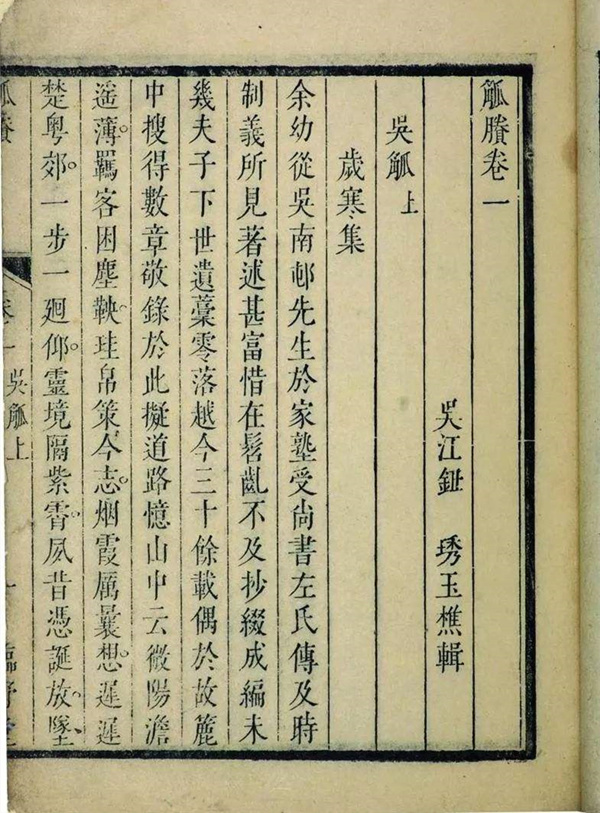 觚賸卷一
吳江鈕 琇玉樵輯
吳觚上
歲寒集
余幼從吳南邨先生於家塾受尚書左氏傳及時
制義所見著述甚富惜在髫齔不及抄綴成編未
幾夫子下世遺藁零落越今三十餘載偶於故簏
中搜得數章敬錄於此擬道路憶山中云微陽澹
遥薄羈客困塵鞅珪帛策今志烟霞厲曩想遲遲
楚粤郊一步一廻仰靈境隔紫霄夙昔憑誕放墜
觚賸 卷一 吳觚上 一